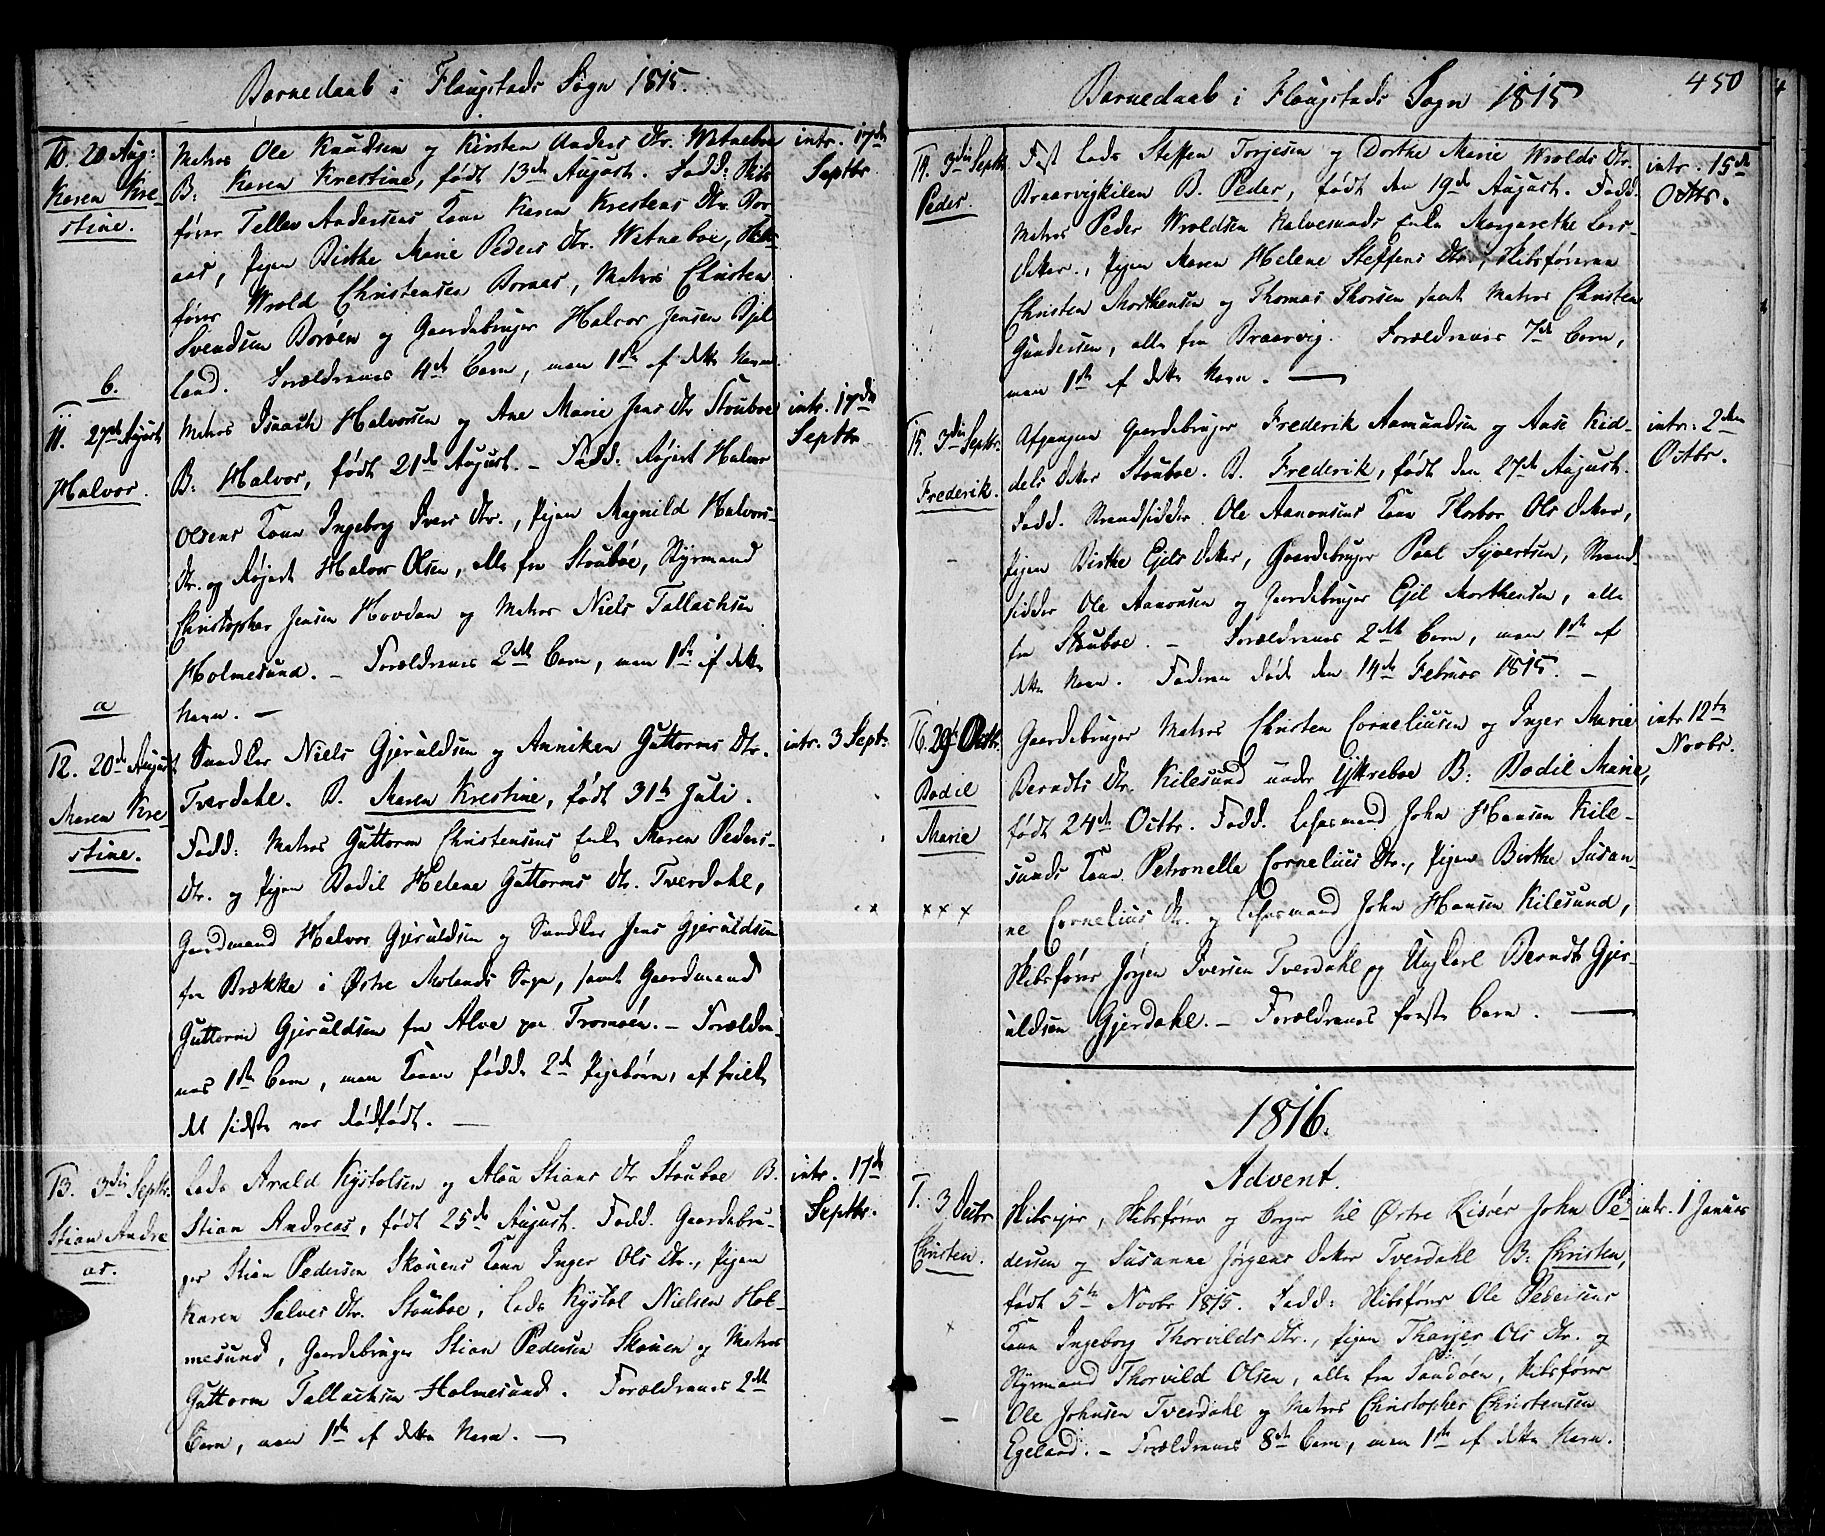 Barnedaab i Flaugstads Sogn 1815.
10. 20 Aug:
Karen Kre-
stine.
Matros Ole Knudsen og Kirsten Anders Dtr. Watneboe
B: Karen Krestine, født 13de August. Fadd: Skibs
fører Tellev Andersens Kone Karen Krestens Dtr. Bor
aas, Pigen Birthe Marie Peders Dtr. Watneboe, Skibs
fører Wrold Christensen Boraas, Matros Christen
Svendsen Borøen og Gaardebruger Halvor Jensen Bjel
land. Forældrenes 4de Barn, men 1ste af dette Navn.
intr. 17de
Septbr
b.
11. 27de August
Halvor.
Matros Isaach Halvorsen og Ane Marie Jens Dtr Stouboe
B: Halvor, født 21de August. - Fadd. Halvor
Olsens Kone Ingeborg Ivers Dtr., Pigen Magnild Halvors-
Dtr. og Halvor Olsen, alle fra Stouboe, Styrmand
Christopher Jensen Hovdan og Matros Niels Tallachsen
Holmesund. - Forældrenes 2det Barn, men 1ste af dette
Navn. -
intr. 17de
Septbr
a
12. 20de August
Maren Kre-
stine.
Snedker Niels Gjeruldsen og Anniken Guttorms Dtr.
Tverdahl. B. Maren Krestine, født 31te Juli.
Fadd: Matros Guttorm Christensens Enke Maren Peders-
Dtr. og Pigen Bodil Helene Guttorms Dtr. Tverdahl,
Gaardmand Halvor Gjeruldsen og Snedker Jens Gjeruldsen
fra Brække i Østre Molands Sogn, samt Gaardmand
Guttorm Gjeruldsen fra Alve paa Tromøen. - Forældre
nes 1ste Barn, men Konen fødde 2de Pigebørn, af hvilke
det sidste var dødfødt. -
intr. 3 Sept.
13. 3die Septbr.
Stian Andre
as.
Lods Arald Kystolsen og Aloa Stians Dtr Stouboe B.
Stian Andreas, født 25de August. Fadd. Gaardebru-
ger Stian Pedersen Skouens Kone Inger Ols Dtr., Pigen
Karen Salves Dtr. Stouboe, Lods Kystol Nielsen Hol-
mesund, Gaardebruger Stian Pedersen Skouen og Matros
Guttorm Tallachsen Holmesund. Forældrenes 2det
Barn, men 1ste af dette Navn. -
intr. 17de
Septbr.
Barnedaab i Flaugstads Sogn 1815
450
14. 3die Septbr
Peder.
Fast Lods Steffen Torjesen og Dorthe Marie Wrolds Dtr.
Braarvigkilen B. Peder, født den 19de August. Fadd.
Matros Peder Wroldsen Kalvesunds Enke Margarethe Lars-
Datter, Pigen Maren Helene Steffens Dtr., Skibsførerne
Christen Morthensen og Thomas Thorsen samt Matros Christen
Gundersen, alle fra Braarvig. Forældrenes 7de Barn,
men 1ste af dette Navn. -
intr. 15de
Octbr.
15. 3die Septbr.
Frederik.
Afgangen Gaardebruger Frederik Aamundsen og Aase Kid-
dels Datter Stouboe. B. Frederik, født den 27de August.
Fadd. Strandsidder Ole Aanonsens Kone Thorbor Ols Datter,
Pigen Birthe Ejels Datter, Gaardebruger Paal Syvertsen, Strand-
sidder Ole Aanonsen og Gaardebruger Ejel Morthensen, alle
fra Stouboe. - Forældrenes 2det Barn, men 1ste af
dette Navn. Faderen døde den 14de Februar 1815. -
intr. 2den
Octbr.
16. 29de Octbr.
Bodil
Marie
Gaardebruger Matros Christen Corneliusen og Inger Marie
Berndts Dtr. Kilesund under Ytterboe B: Bodil Marie,
født 24de Octbr. Fadd. John Hansen Kile-
sunds Kone Petronelle Cornelius Dtr., Pigen Birthe Susan-
ne Cornelius Dtr. og John Hansen Kilesund,
Skibsfører Jörgen Iversen Tverdahl og Ungkarl Berndt Gjer-
uldsen Gjerdahl. - Forældrenes første Barn. -
intr 12te
Novbr.
x x x
1816.
Advent.
1. 3 Decbr
Christen.
Skibsejer, Skibsfører og Borger til Østre Risöer John Pe-
dersen og Susanne Jørgens Datter Tverdahl B: Christen,
født 5te Novbr 1815. Fadd: Skibsfører Ole Pedersens
Kone Ingeborg Thorvilds Dtr., Pigen Tharjer Ols Dtr. og
Styrmand Thorvild Olsen, alle fra Sandøen, Skibsfører
Ole Johnsen Tverdahl og Matros Christopher Christensen
Egeland. - Forældrenes 8de Barn, men 1ste af dette Navn.
intr. 1 Januar